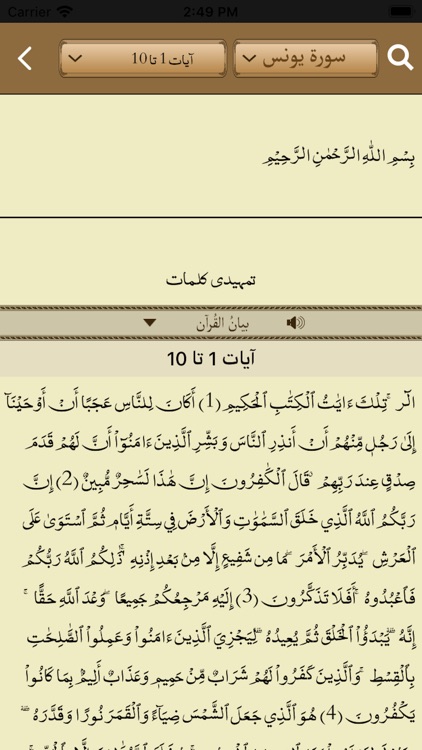 Carrier 2:49 PM
آیات 1 تا 10 سورة یونس
بِسْمِ اللّٰهِ الرَّحْمٰنِ الرَّحِيْمِ
تمہیدی کلمات
بیانُ القُرآن
آیات 1 تا 10
الٓر ۚ تِلْكَ ءَايَٰتُ ٱلْكِتَٰبِ ٱلْحَكِيمِ (1) أَكَانَ لِلنَّاسِ عَجَبًا أَنْ أَوْحَيْنَآ
إِلَىٰ رَجُلٍ مِّنْهُمْ أَنْ أَنذِرِ ٱلنَّاسَ وَبَشِّرِ ٱلَّذِينَ ءَامَنُوٓا۟ أَنَّ لَهُمْ قَدَمَ
صِدْقٍ عِندَ رَبِّهِمْ ۗ قَالَ ٱلْكَٰفِرُونَ إِنَّ هَٰذَا لَسَٰحِرٌ مُّبِينٌ (2) إِنَّ
رَبَّكُمُ ٱللَّهُ ٱلَّذِي خَلَقَ ٱلسَّمَٰوَٰتِ وَٱلْأَرْضَ فِي سِتَّةِ أَيَّامٍ ثُمَّ ٱسْتَوَىٰ عَلَى
ٱلْعَرْشِ ۖ يُدَبِّرُ ٱلْأَمْرَ ۖ مَا مِن شَفِيعٍ إِلَّا مِنۢ بَعْدِ إِذْنِهِۦ ۚ ذَٰلِكُمُ ٱللَّهُ رَبُّكُمْ
فَٱعْبُدُوهُ ۚ أَفَلَا تَذَكَّرُونَ (3) إِلَيْهِ مَرْجِعُكُمْ جَمِيعًا ۖ وَعْدَ ٱللَّهِ حَقًّا ۚ
إِنَّهُۥ يَبْدَؤُا۟ ٱلْخَلْقَ ثُمَّ يُعِيدُهُۥ لِيَجْزِيَ ٱلَّذِينَ ءَامَنُوا۟ وَعَمِلُوا۟ ٱلصَّٰلِحَٰتِ
بِٱلْقِسْطِ ۚ وَٱلَّذِينَ كَفَرُوا۟ لَهُمْ شَرَابٌ مِّنْ حَمِيمٍ وَعَذَابٌ أَلِيمٌۢ بِمَا كَانُوا۟
يَكْفُرُونَ (4) هُوَ ٱلَّذِي جَعَلَ ٱلشَّمْسَ ضِيَآءً وَٱلْقَمَرَ نُورًا وَقَدَّرَهُۥ